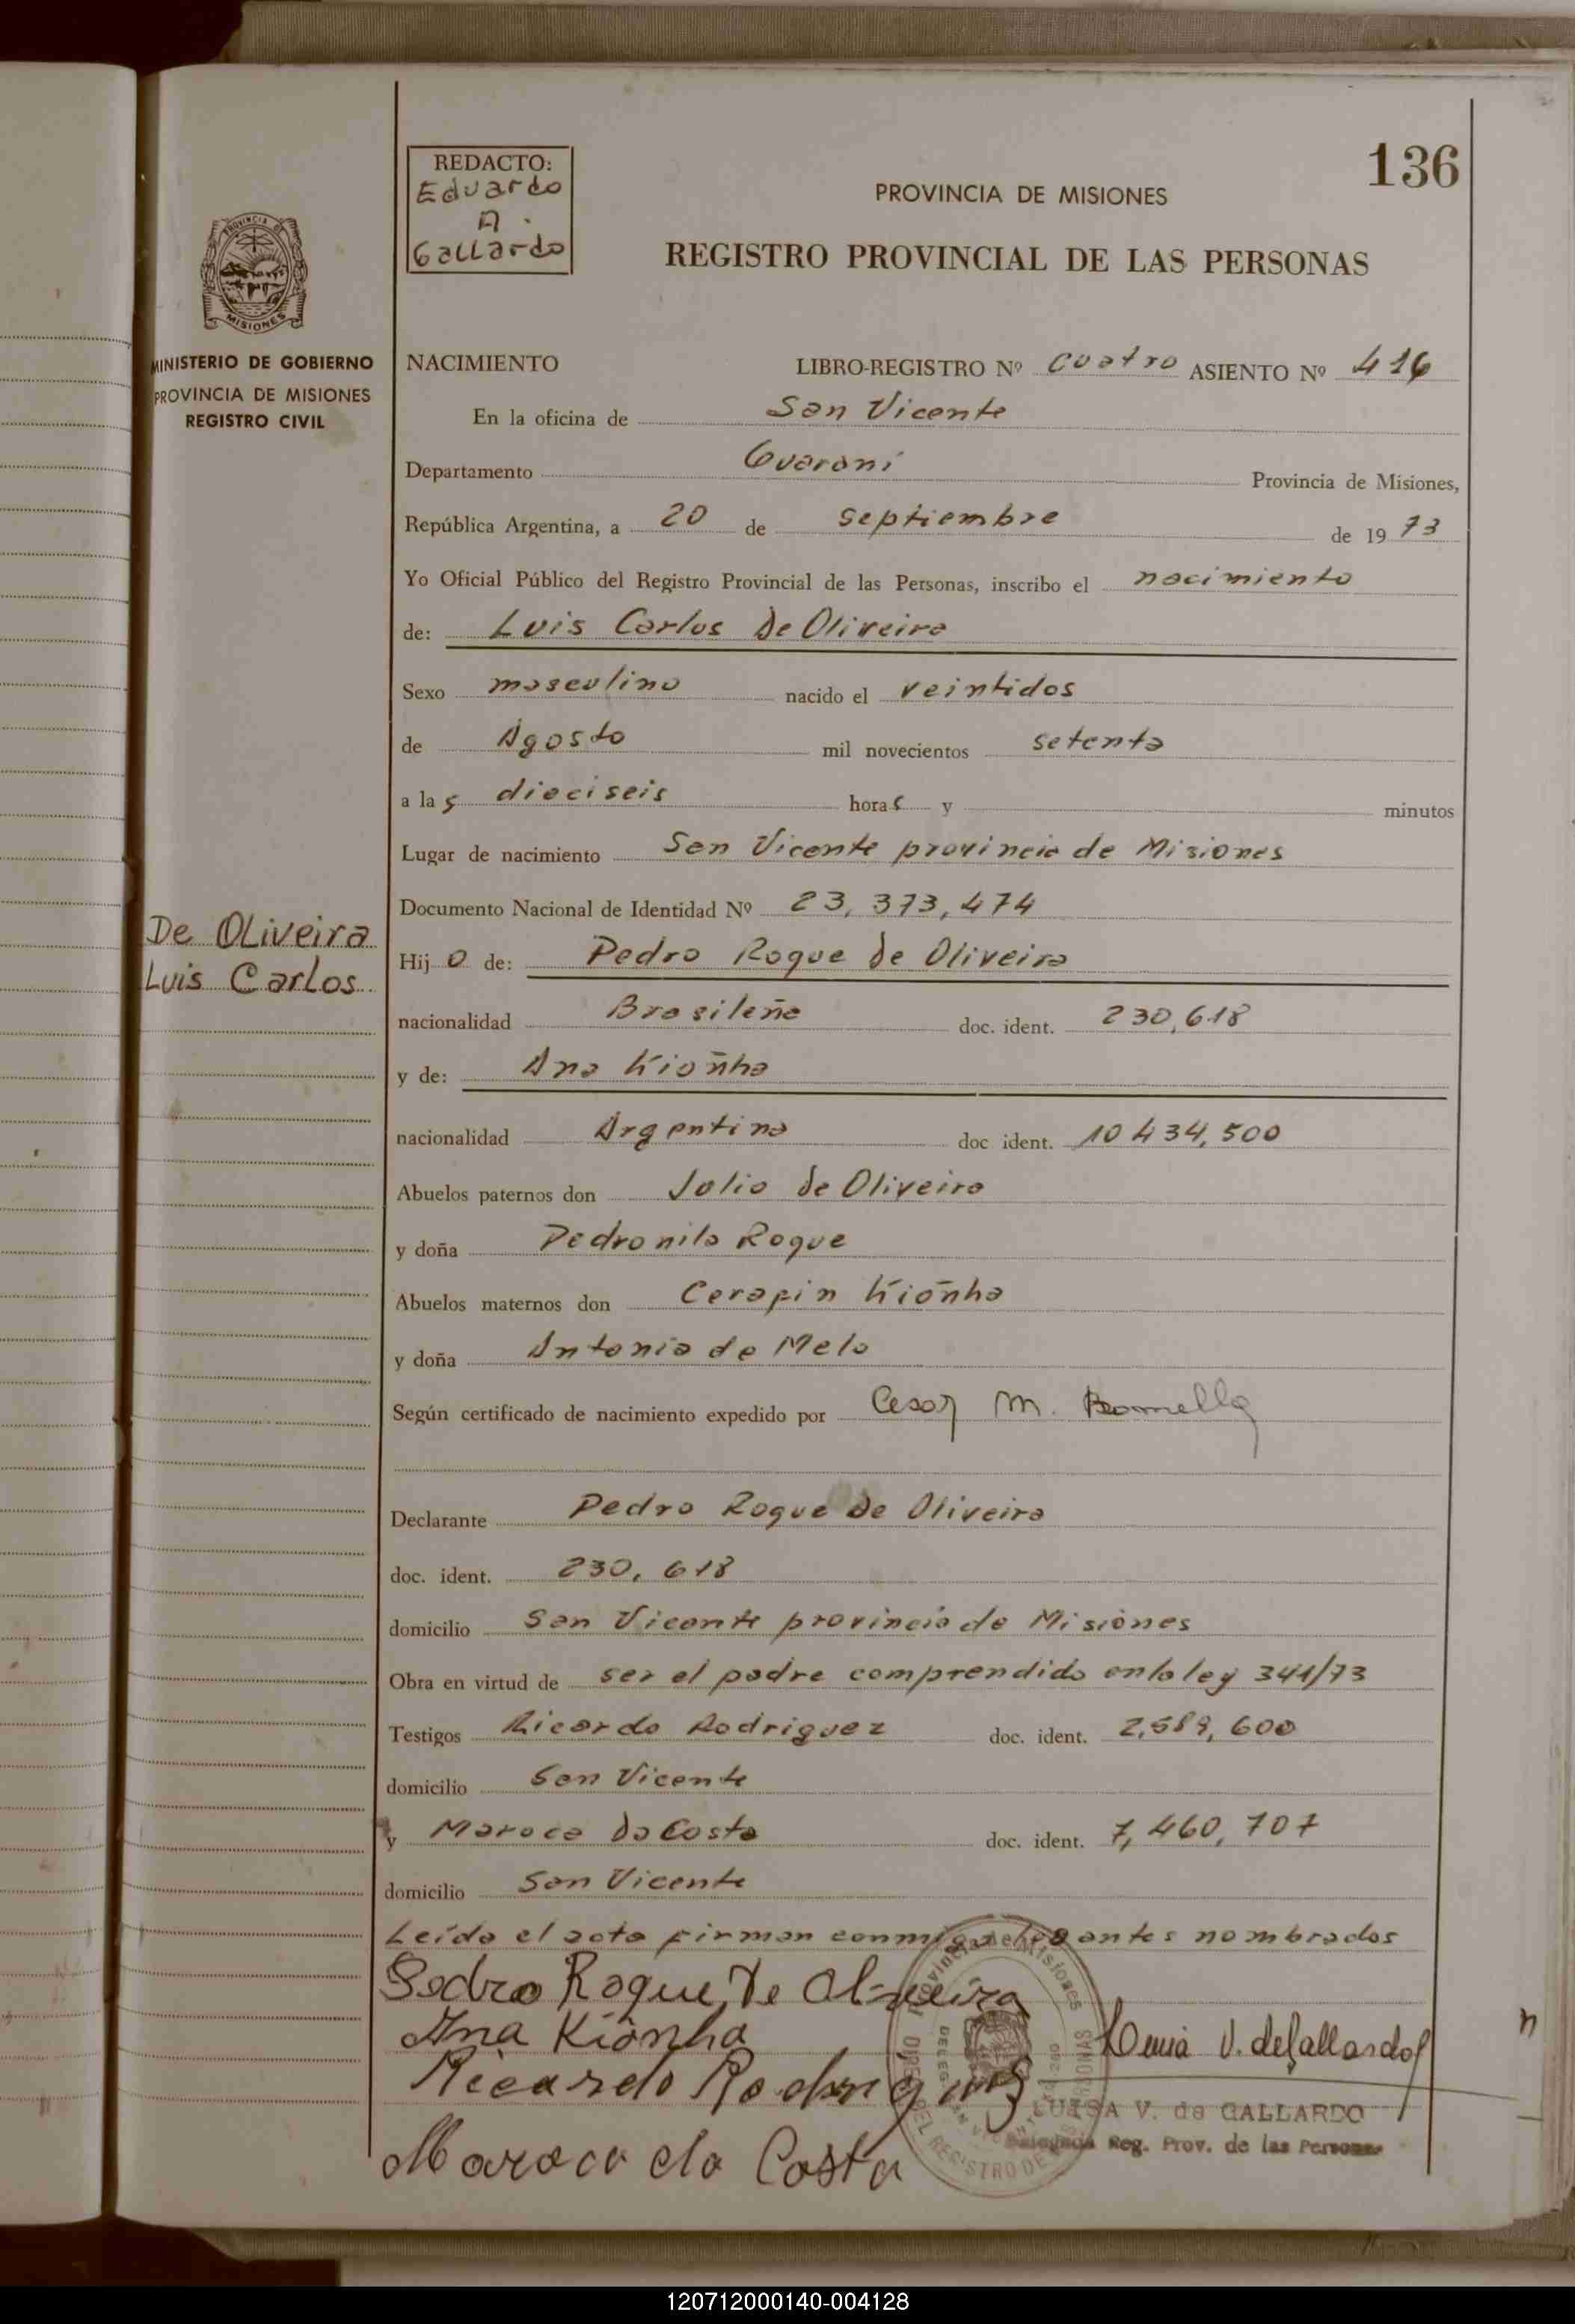 136
REDACTO:
Eduardo
A.
Gallardo
PROVINCIA DE MISIONES
REGISTRO PROVINCIAL DE LAS PERSONAS
PROVINCIA DE
MISIONES
MINISTERIO DE GOBIERNO
PROVINCIA DE MISIONES
REGISTRO CIVIL
NACIMIENTO LIBRO-REGISTRO Nº cuatro ASIENTO Nº 416
En la oficina de San Vicente
Departamento Guarani Provincia de Misiones,
República Argentina, a 20 de septiembre de 1973
Yo Oficial Público del Registro Provincial de las Personas, inscribo el nacimiento
de: Luis Carlos De Oliveira
Sexo masculino nacido el veintidos
de Agosto mil novecientos setenta
a las dieciseis horas y minutos
Lugar de nacimiento San Vicente provincia de Misiones
Documento Nacional de Identidad Nº 23,373,474
De Oliveira
Luis Carlos
Hijo de: Pedro Roque de Oliveira
nacionalidad Brasileña doc. ident. 230,618
y de: Ana Kioñha
nacionalidad Argentina doc ident. 10434,500
Abuelos paternos don Julio de Oliveira
y doña Pedronila Roque
Abuelos maternos don Cerafin Kioñha
y doña Antonia de Melo
Según certificado de nacimiento expedido por Cesar M.
Declarante Pedro Roque de Oliveira
doc. ident. 230,618
domicilio San Vicente provincia de Misiones
Obra en virtud de ser el padre comprendido en la ley 341/73
Testigos Ricardo Rodriguez doc. ident. 2,589,600
domicilio San Vicente
y Maroca Da Costa doc. ident. 7,460,707
domicilio San Vicente
Leida el acta firman conmigo los antes nombrados
Pedro Roque De Oliveira
Ana Kiónha
Ricardo Rodriguez
Maroca da Costa
V. de Gallardo
LUISA V. de GALLARDO
Delegada Reg. Prov. de las Personas
Provincia de Misiones
120712000140-004128